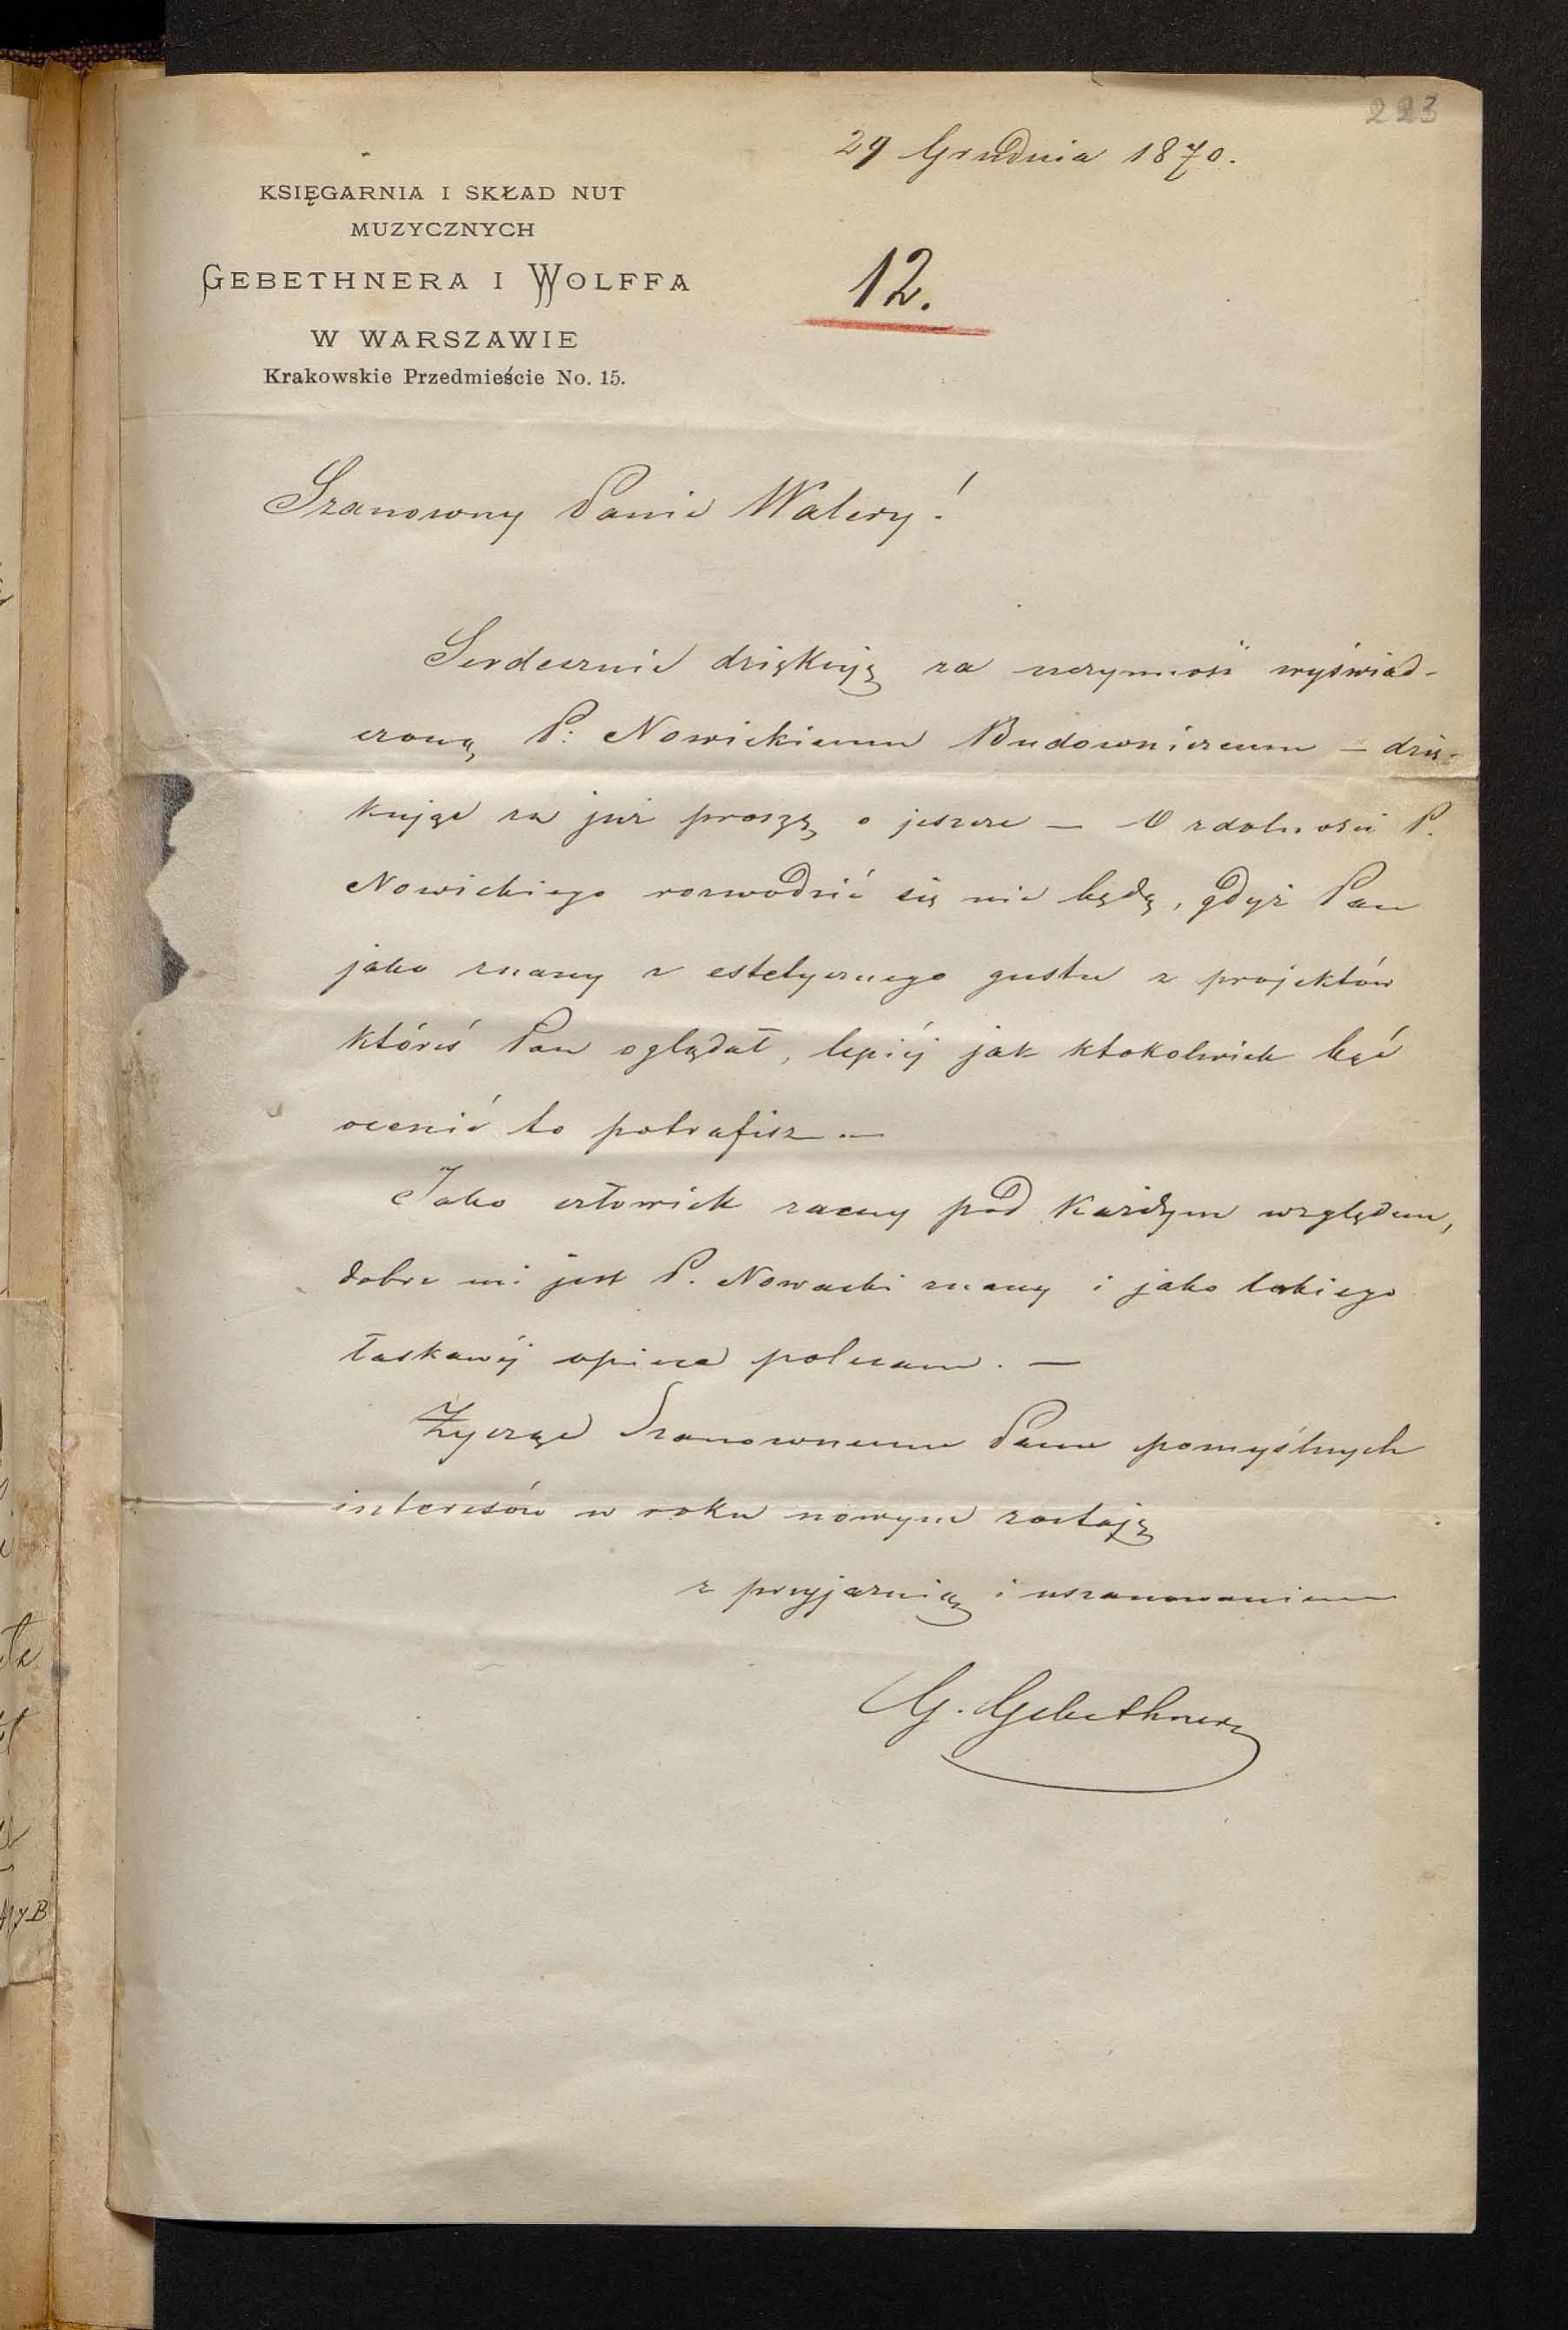 223
29 Grudnia 1870.
KSIĘGARNIA I SKŁAD NUT
MUZYCZNYCH
GEBETHNERA I WOLFFA
W WARSZAWIE
Krakowskie Przedmieście No. 15.
12.
Szanowny Panie Walery!
Serdecznie dziękuję za uczynność wyświad-
czoną P: Nowickiemu Budowniczemu – dzię-
kując za już proszę o jeszcze – O zdolności P.
Nowickiego rozwodzić się nie będę, gdyż Pan
jako znany z estetycznego gustu z projektów
któreś Pan oglądał, lepiéj jak ktokolwiek bąć
ocenić to potrafisz –
Jako człowiek zacny pod każdym względem,
dobrze mi jest P. Nowacki znany i jako takiego
łaskawéj opiece polecam. –
Życząc Szanownemu Panu pomyślnych
interesów w roku nowym zostaję
z przyjaźnią i uszanowaniem
G. Gebethner